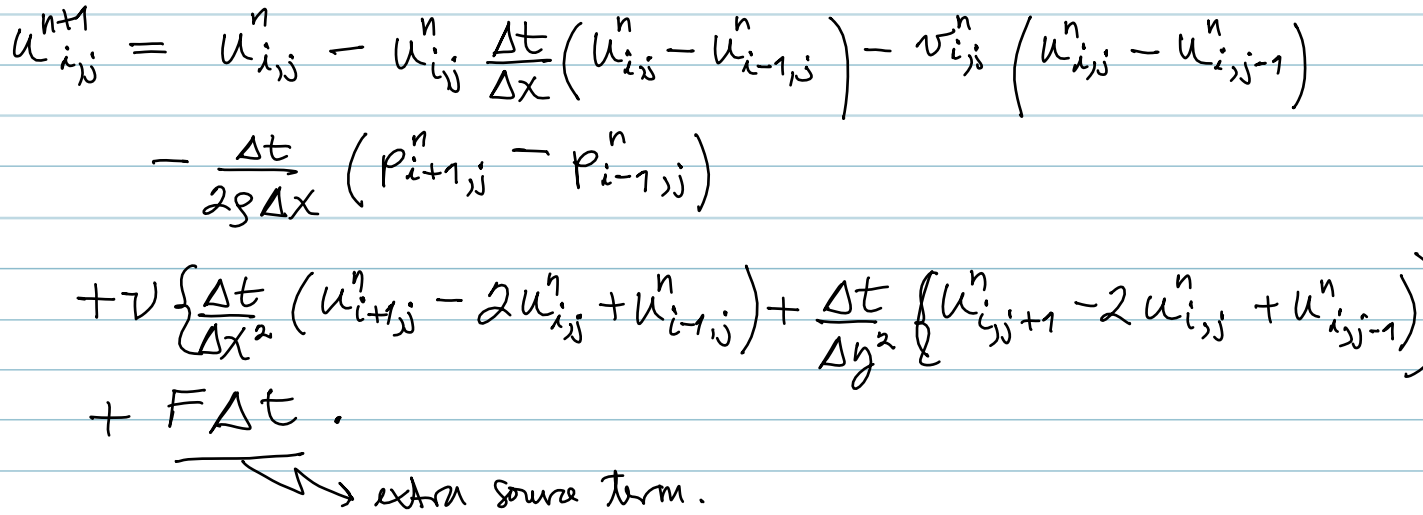 u^{n+1}_{i,j} = u^n_{i,j} - u^n_{i,j} \frac{Δt}{Δx} (u^n_{i,j} - u^n_{i-1,j}) - v^n_{i,j} (u^n_{i,j} - u^n_{i,j-1})
- \frac{Δt}{2ρΔx} (p^n_{i+1,j} - p^n_{i-1,j})
+ν { \frac{Δt}{Δx^2} (u^n_{i+1,j} - 2u^n_{i,j} + u^n_{i-1,j}) + \frac{Δt}{Δy^2} { u^n_{i,j+1} - 2u^n_{i,j} + u^n_{i,j-1} )
+ FΔt .
→ extra source term.